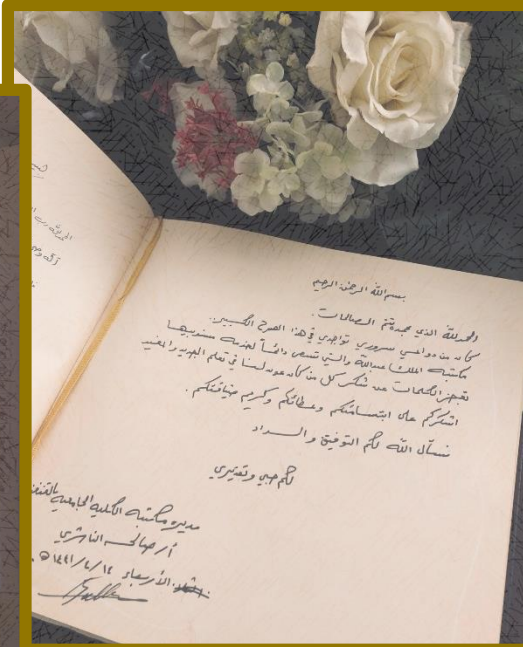 بسم الله الرحمن الرحيم
الحمدلله الذي بحمده تتم الصالحات.
كان من دواعي سروري تواجدي في هذا الصرح الكبير..
مكتبة الملك عبدالله والتي تسعى دائماً لخدمة مستفيديها
تعجز الكلمات عن شكر كل من كان عون لنا في تعلم الجديد والمفيد
اشكركم على ابتسامتكم وعطائكم وكريم ضيافتكم.
نسأل الله لكم التوفيق والسداد
لكم حبي وتقديري
مديرة مكتبة الكلية الجامعية بالقنفذ
أ/ صالحه الناشري
الأربعاء ١٤٤١/٤/١٤ ه